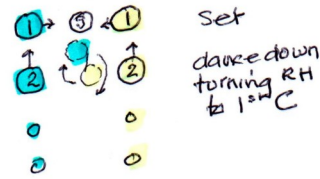 1 5 1 Set
2 2 dance down
turning RH
to 1st C